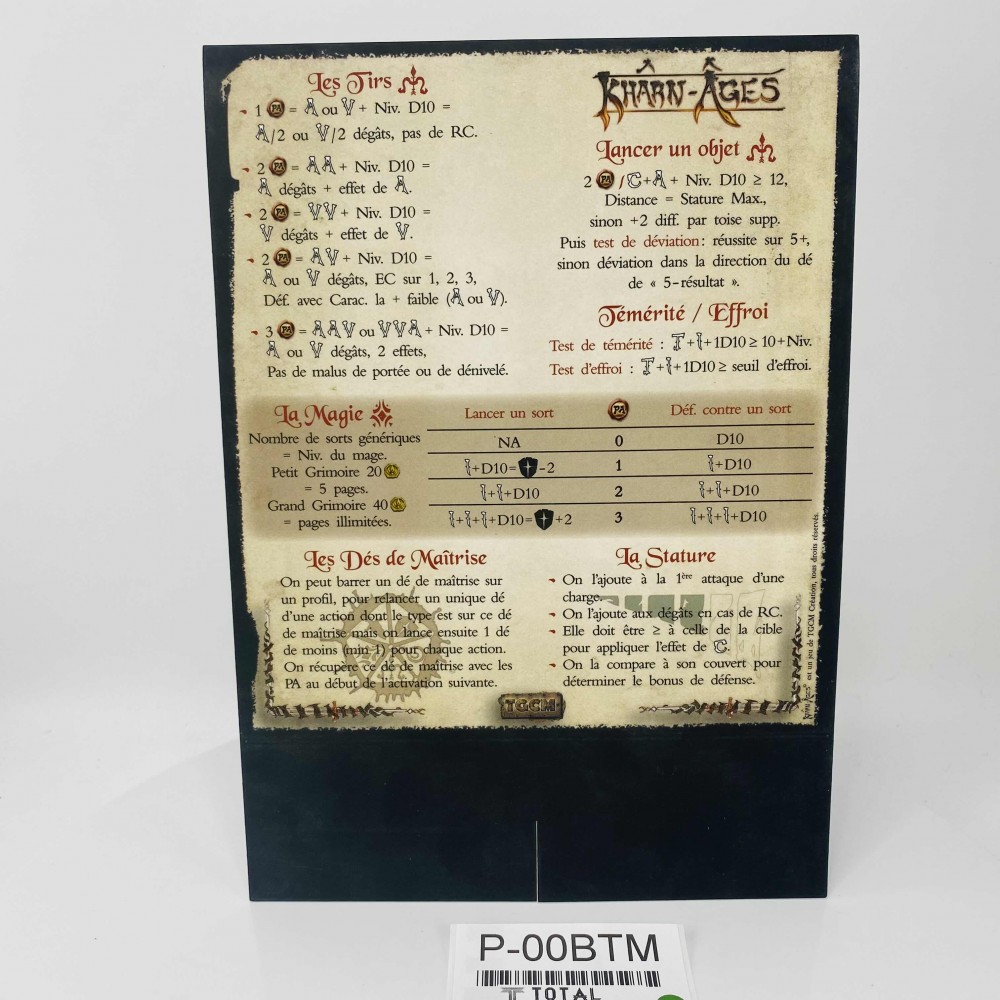 Les Tirs
1 PA = A ou V + Niv. D10 =
A/2 ou V/2 dégâts, pas de RC.
2 PA = AA + Niv. D10 =
A dégâts + effet de A.
2 PA = VV + Niv. D10 =
V dégâts + effet de V.
2 PA = AV + Niv. D10 =
A ou V dégâts, EC sur 1, 2, 3,
Déf. avec Carac. la + faible (A ou V).
3 PA = AAV ou VVA + Niv. D10 =
A ou V dégâts, 2 effets,
Pas de malus de portée ou de dénivelé.
KHÂRN-ÂGES
Lancer un objet
2 PA /C+A + Niv. D10 ≥ 12,
Distance = Stature Max.,
sinon +2 diff. par toise supp.
Puis test de déviation : réussite sur 5+,
sinon déviation dans la direction du dé
de « 5-résultat ».
Témérité / Effroi
Test de témérité : T+I+1D10 ≥ 10+Niv.
Test d'effroi : T+I+1D10 ≥ seuil d'effroi.
La Magie
Nombre de sorts génériques
= Niv. du mage.
Petit Grimoire 20
= 5 pages.
Grand Grimoire 40
= pages illimitées.
Lancer un sort PA Déf. contre un sort
NA 0 D10
I+D10= -2 1 I+D10
I+I+D10 2 I+I+D10
I+I+I+D10= +2 3 I+I+I+D10
Les Dés de Maîtrise
On peut barrer un dé de maîtrise sur
un profil, pour relancer un unique dé
d'une action dont le type est sur ce dé
de maîtrise mais on lance ensuite 1 dé
de moins (min 1) pour chaque action.
On récupère ce dé de maîtrise avec les
PA au début de l'activation suivante.
La Stature
On l'ajoute à la 1ère attaque d'une
charge.
On l'ajoute aux dégâts en cas de RC.
Elle doit être ≥ à celle de la cible
pour appliquer l'effet de C.
On la compare à son couvert pour
déterminer le bonus de défense.
TGCM
Khârn-Âges® est un jeu de TGCM Création, tous droits réservés.
P-00BTM
TOTAL